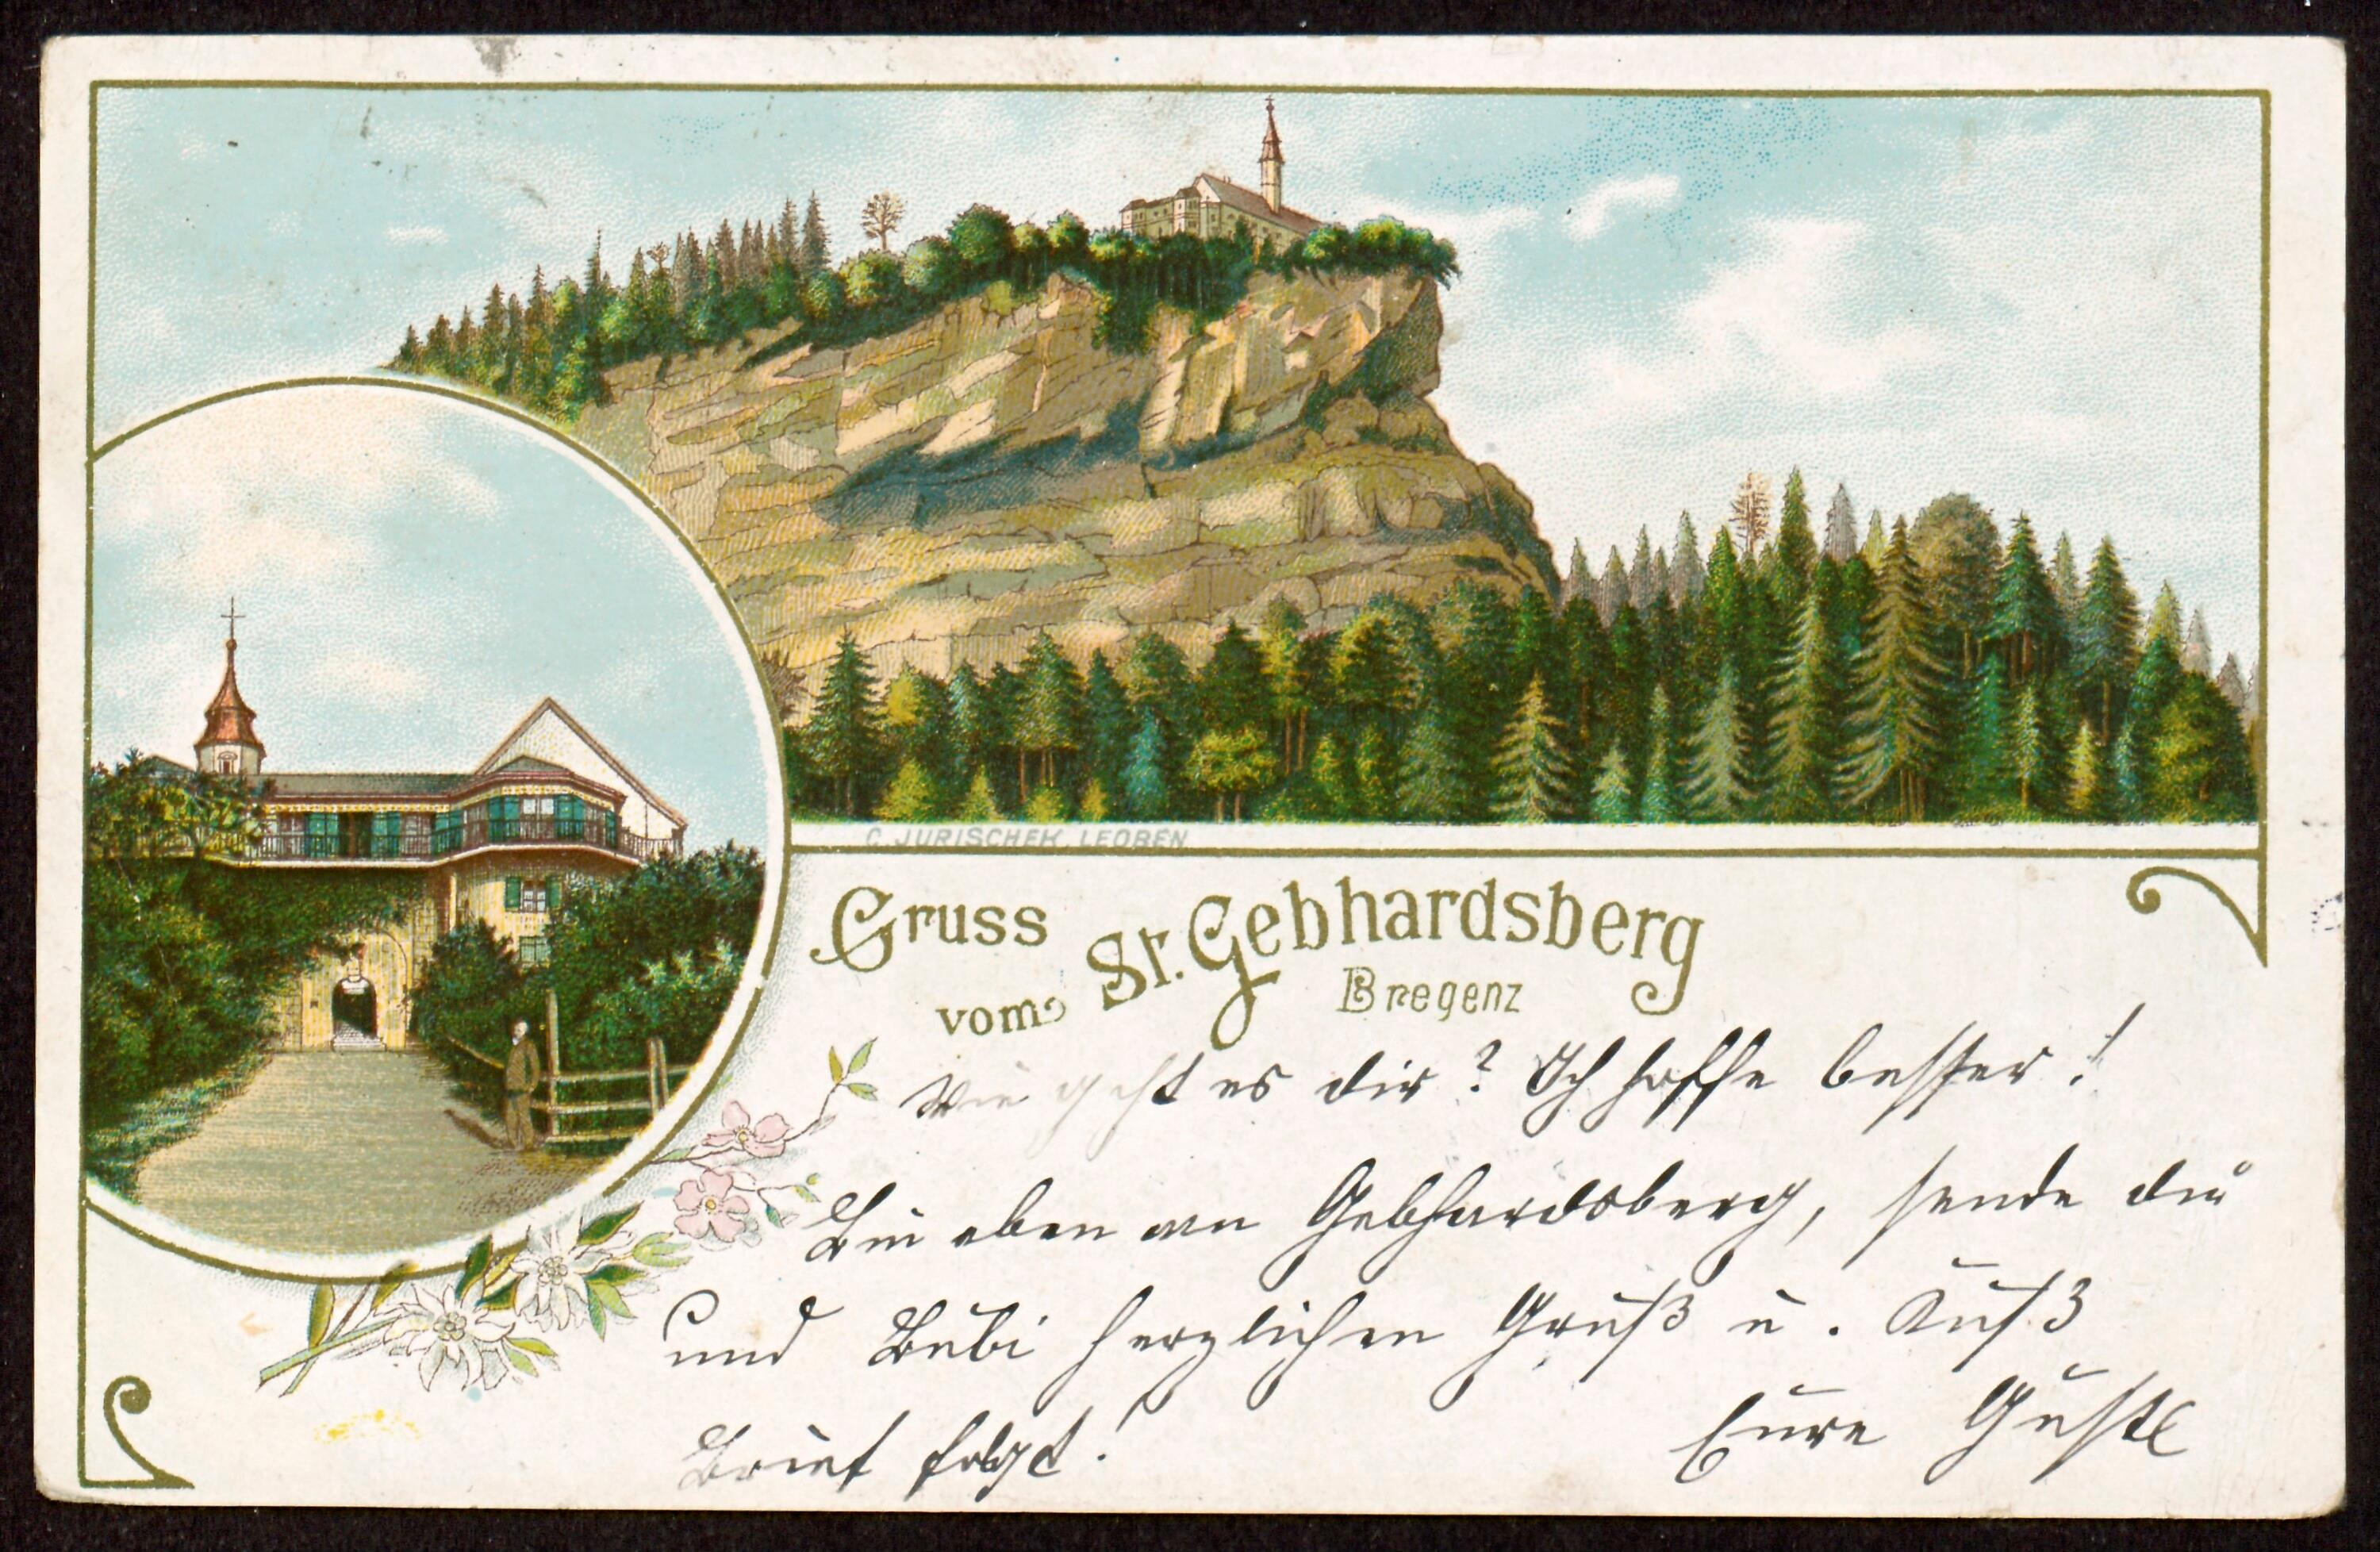 C. JURISCHEK, LEOBEN
Gruss
vom St. Gebhardsberg
Bregenz
Wie geht es dir? Ich hoffe besser!
Bin eben am Gebhardsberg, sende dir
und Bubi herzlichen Gruß u. Kuß
Brief folgt!
Eure Gustl